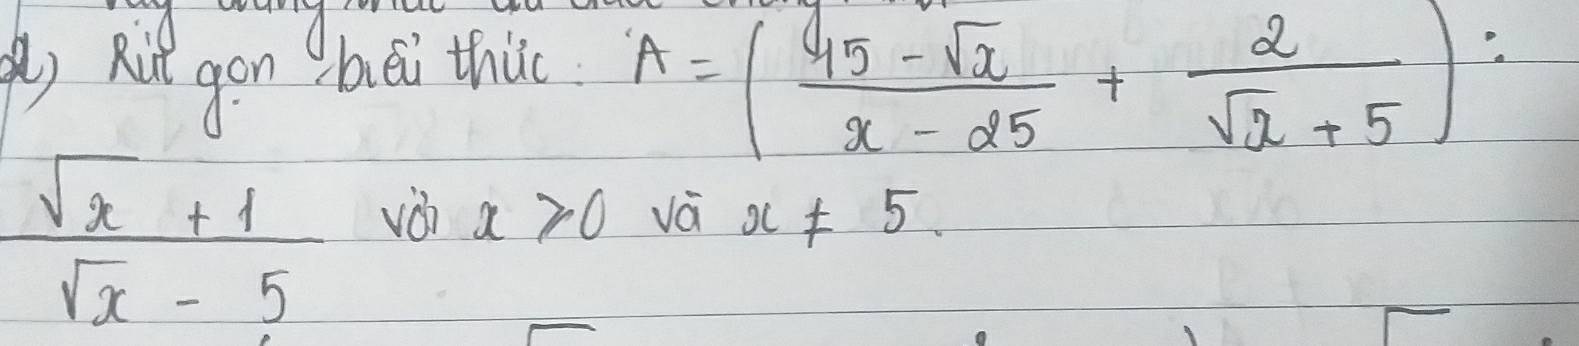 2) Rút gọn biểu thức : A = ( (15 - √x)/(x - 25) + 2/(√x + 5) ) :
(√x + 1)/(√x - 5) với x ≥ 0 và x ≠ 5.